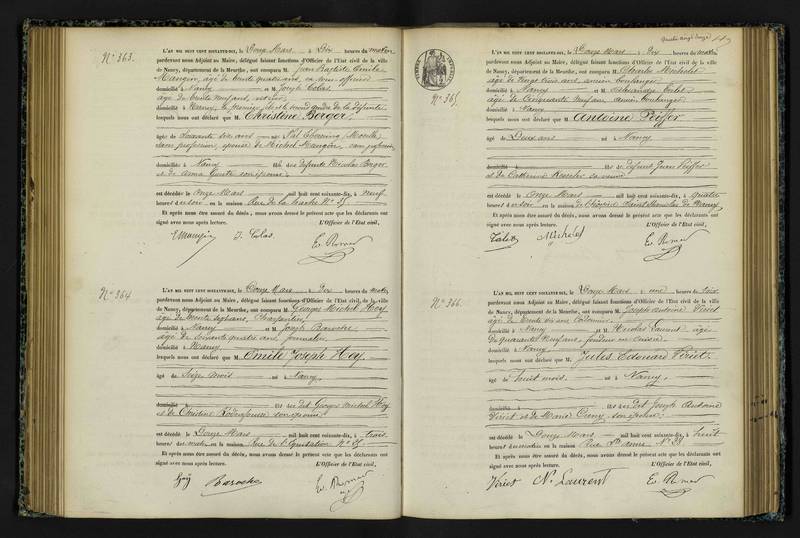 N° 363.
L'AN MIL HUIT CENT SOIXANTE-DIX, le Douze Mars à Dix heures du matin
pardevant nous Adjoint au Maire, délégué faisant fonctions d'Officier de l'Etat civil de la ville
de Nancy, département de la Meurthe, ont comparu M. Jean Baptiste Emile
Mangin, âgé de trente quatre ans, officier
domicilié à Nancy et M Joseph Colas
âgé de trente neuf ans
domicilié à Nancy, le premier fils et le second gendre de la défunte
lesquels nous ont déclaré que M. Christine Berger
âgée de Soixante six ans née (Moselle)
sans profession, épouse de Michel Mangin, sans profession
domiciliée à Nancy fille des défunts Nicolas Berger
et de Anna son épouse
est décédée le Onze Mars mil huit cent soixante-dix, à neuf
heures du soir en la maison Rue de la hache N° 85
Et après nous être assuré du décès, nous avons dressé le présent acte que les déclarants ont
signé avec nous après lecture. L'Officier de l'Etat civil,
E Mangin J. Colas
N° 364
L'AN MIL HUIT CENT SOIXANTE-DIX, le Douze Mars à Dix heures du matin
pardevant nous Adjoint au Maire, délégué faisant fonctions d'Officier de l'Etat civil de la ville
de Nancy, département de la Meurthe, ont comparu M. Georges Michel Hoy
âgé de trente sept ans, Charpentier
domicilié à Nancy et M Joseph Baroche
âgé de soixante quatre ans journalier
domicilié à Nancy
lesquels nous ont déclaré que M. Emile Joseph Hoy
âgé de Seize mois né à Nancy
domicilié à fils du dit Georges Michel Hoy
et de Christine son épouse
est décédé le Douze Mars mil huit cent soixante-dix, à trois
heures du matin, en la maison Rue de l'Equitation N° 85
Et après nous être assuré du décès, nous avons dressé le présent acte que les déclarants ont
signé avec nous après lecture. L'Officier de l'Etat civil,
Hoy Baroche
N° 365.
L'AN MIL HUIT CENT SOIXANTE-DIX, le Douze Mars à dix heures du matin
pardevant nous Adjoint au Maire, délégué faisant fonctions d'Officier de l'Etat civil de la ville
de Nancy, département de la Meurthe, ont comparu M. Charles Michelet
âgé de trois ans, ancien boulanger
domicilié à Nancy et M
âgé de Cinquante neuf ans, ancien boulanger
domicilié à Nancy
lesquels nous ont déclaré que M. Antoine Peiffer
âgé de Deux ans né à Nancy
domicilié à fils de défunt Jean Peiffer
et de Catherine sa veuve
est décédé le Onze Mars mil huit cent soixante-dix, à quatre
heures du soir en la maison de l'hospice Saint Stanislas de Nancy
Et après nous être assuré du décès, nous avons dressé le présent acte que les déclarants ont
signé avec nous après lecture. L'Officier de l'Etat civil,
Michelet
N° 366.
L'AN MIL HUIT CENT SOIXANTE-DIX, le Douze Mars à une heures du soir
pardevant nous Adjoint au Maire, délégué faisant fonctions d'Officier de l'Etat civil de la ville
de Nancy, département de la Meurthe, ont comparu M. Joseph Antoine Viriet
âgé de trente six ans
domicilié à Nancy et M Nicolas Laurent âgé
de quarante neuf ans, fondeur en cuivre
domicilié à Nancy
lesquels nous ont déclaré que M. Jules Edouard Viriet
âgé de huit mois né à Nancy
domicilié à fils du dit Joseph Antoine
Viriet et de Marie Cuny son épouse
est décédé le Douze Mars mil huit cent soixante-dix, à huit
heures du matin en la maison Rue Ste Anne N° 28
Et après nous être assuré du décès, nous avons dressé le présent acte que les déclarants ont
signé avec nous après lecture. L'Officier de l'Etat civil,
Viriet N. Laurent